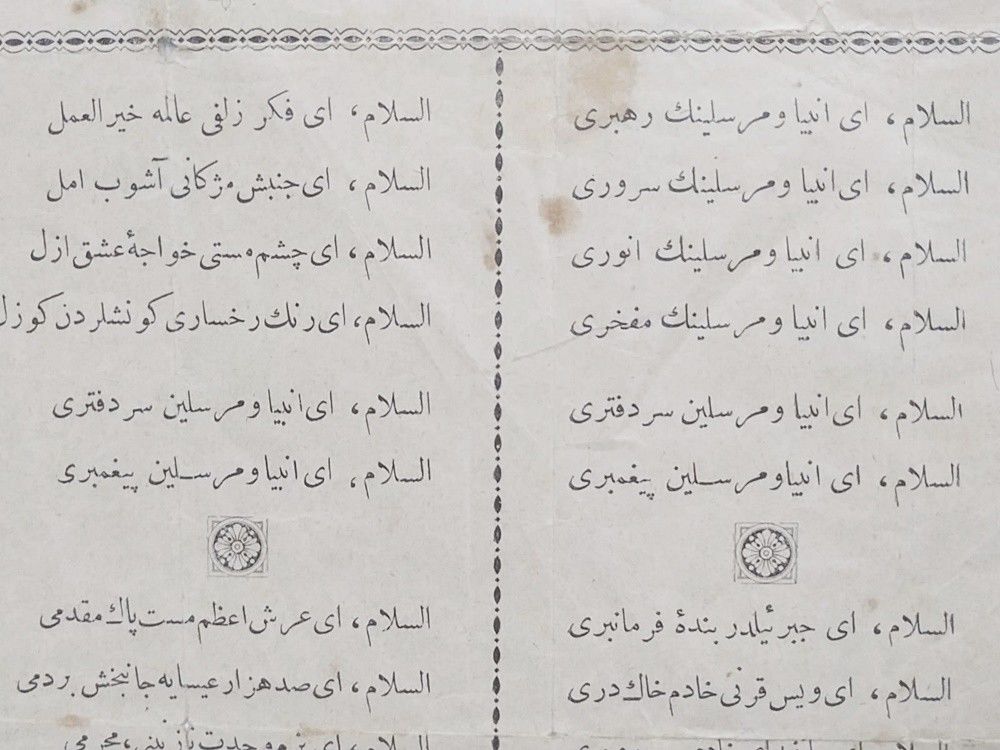 السلام، ای انبیا و مرسلینك رهبری
السلام، ای انبیا و مرسلینك سروری
السلام، ای انبیا و مرسلینك انوری
السلام، ای انبیا و مرسلینك مفخری
السلام، ای انبیا و مرسلین سردفتری
السلام، ای انبیا و مرسلین پیغمبری
السلام، ای جبرئیلدر بندهٔ فرمانبری
السلام، ای ویس قرنی خادم خاك دری
السلام، ای فكر زلفی عالمه خیر العمل
السلام، ای جنبش مژكانی آشوب امل
السلام، ای چشم مستی خواجهٔ عشق ازل
السلام، ای رنك رخساری كونشلردن كوزل
السلام، ای انبیا و مرسلین سردفتری
السلام، ای انبیا و مرسلین پیغمبری
السلام، ای عرش اعظم مست پاك مقدمی
السلام، ای صد هزار عیسایه جانبخش بردمی
السلام، ای بزم وحدت نازنینی، محرمی